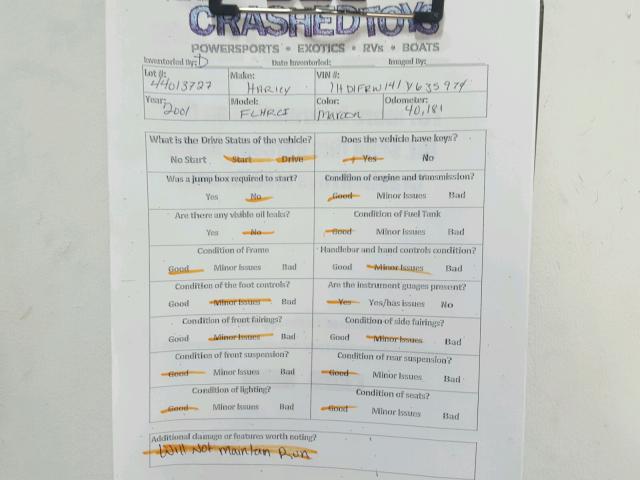 CRASHEDTOYS
POWERSPORTS • EXOTICS • RVs • BOATS
Inventoried By: D Date Inventoried: Imaged By:
Lot #: 44013727 Make: HARLEY VIN #: 1HD1FRW141Y635974
Year: 2001 Model: FLHRCI Color: Maroon Odometer: 40,181
What is the Drive Status of the vehicle? Does the vehicle have keys?
No Start Start Drive Yes No
Was a jump box required to start? Condition of engine and transmission?
Yes No Good Minor Issues Bad
Are there any visible oil leaks? Condition of Fuel Tank
Yes No Good Minor Issues Bad
Condition of Frame Handlebar and hand controls condition?
Good Minor Issues Bad Good Minor Issues Bad
Condition of the foot controls? Are the instrument guages present?
Good Minor Issues Bad Yes Yes/has issues No
Condition of front fairings? Condition of side fairings?
Good Minor Issues Bad Good Minor Issues Bad
Condition of front suspension? Condition of rear suspension?
Good Minor Issues Bad Good Minor Issues Bad
Condition of lighting? Condition of seats?
Good Minor Issues Bad Good Minor Issues Bad
Additional damage or features worth noting?
Will Not maintain Run